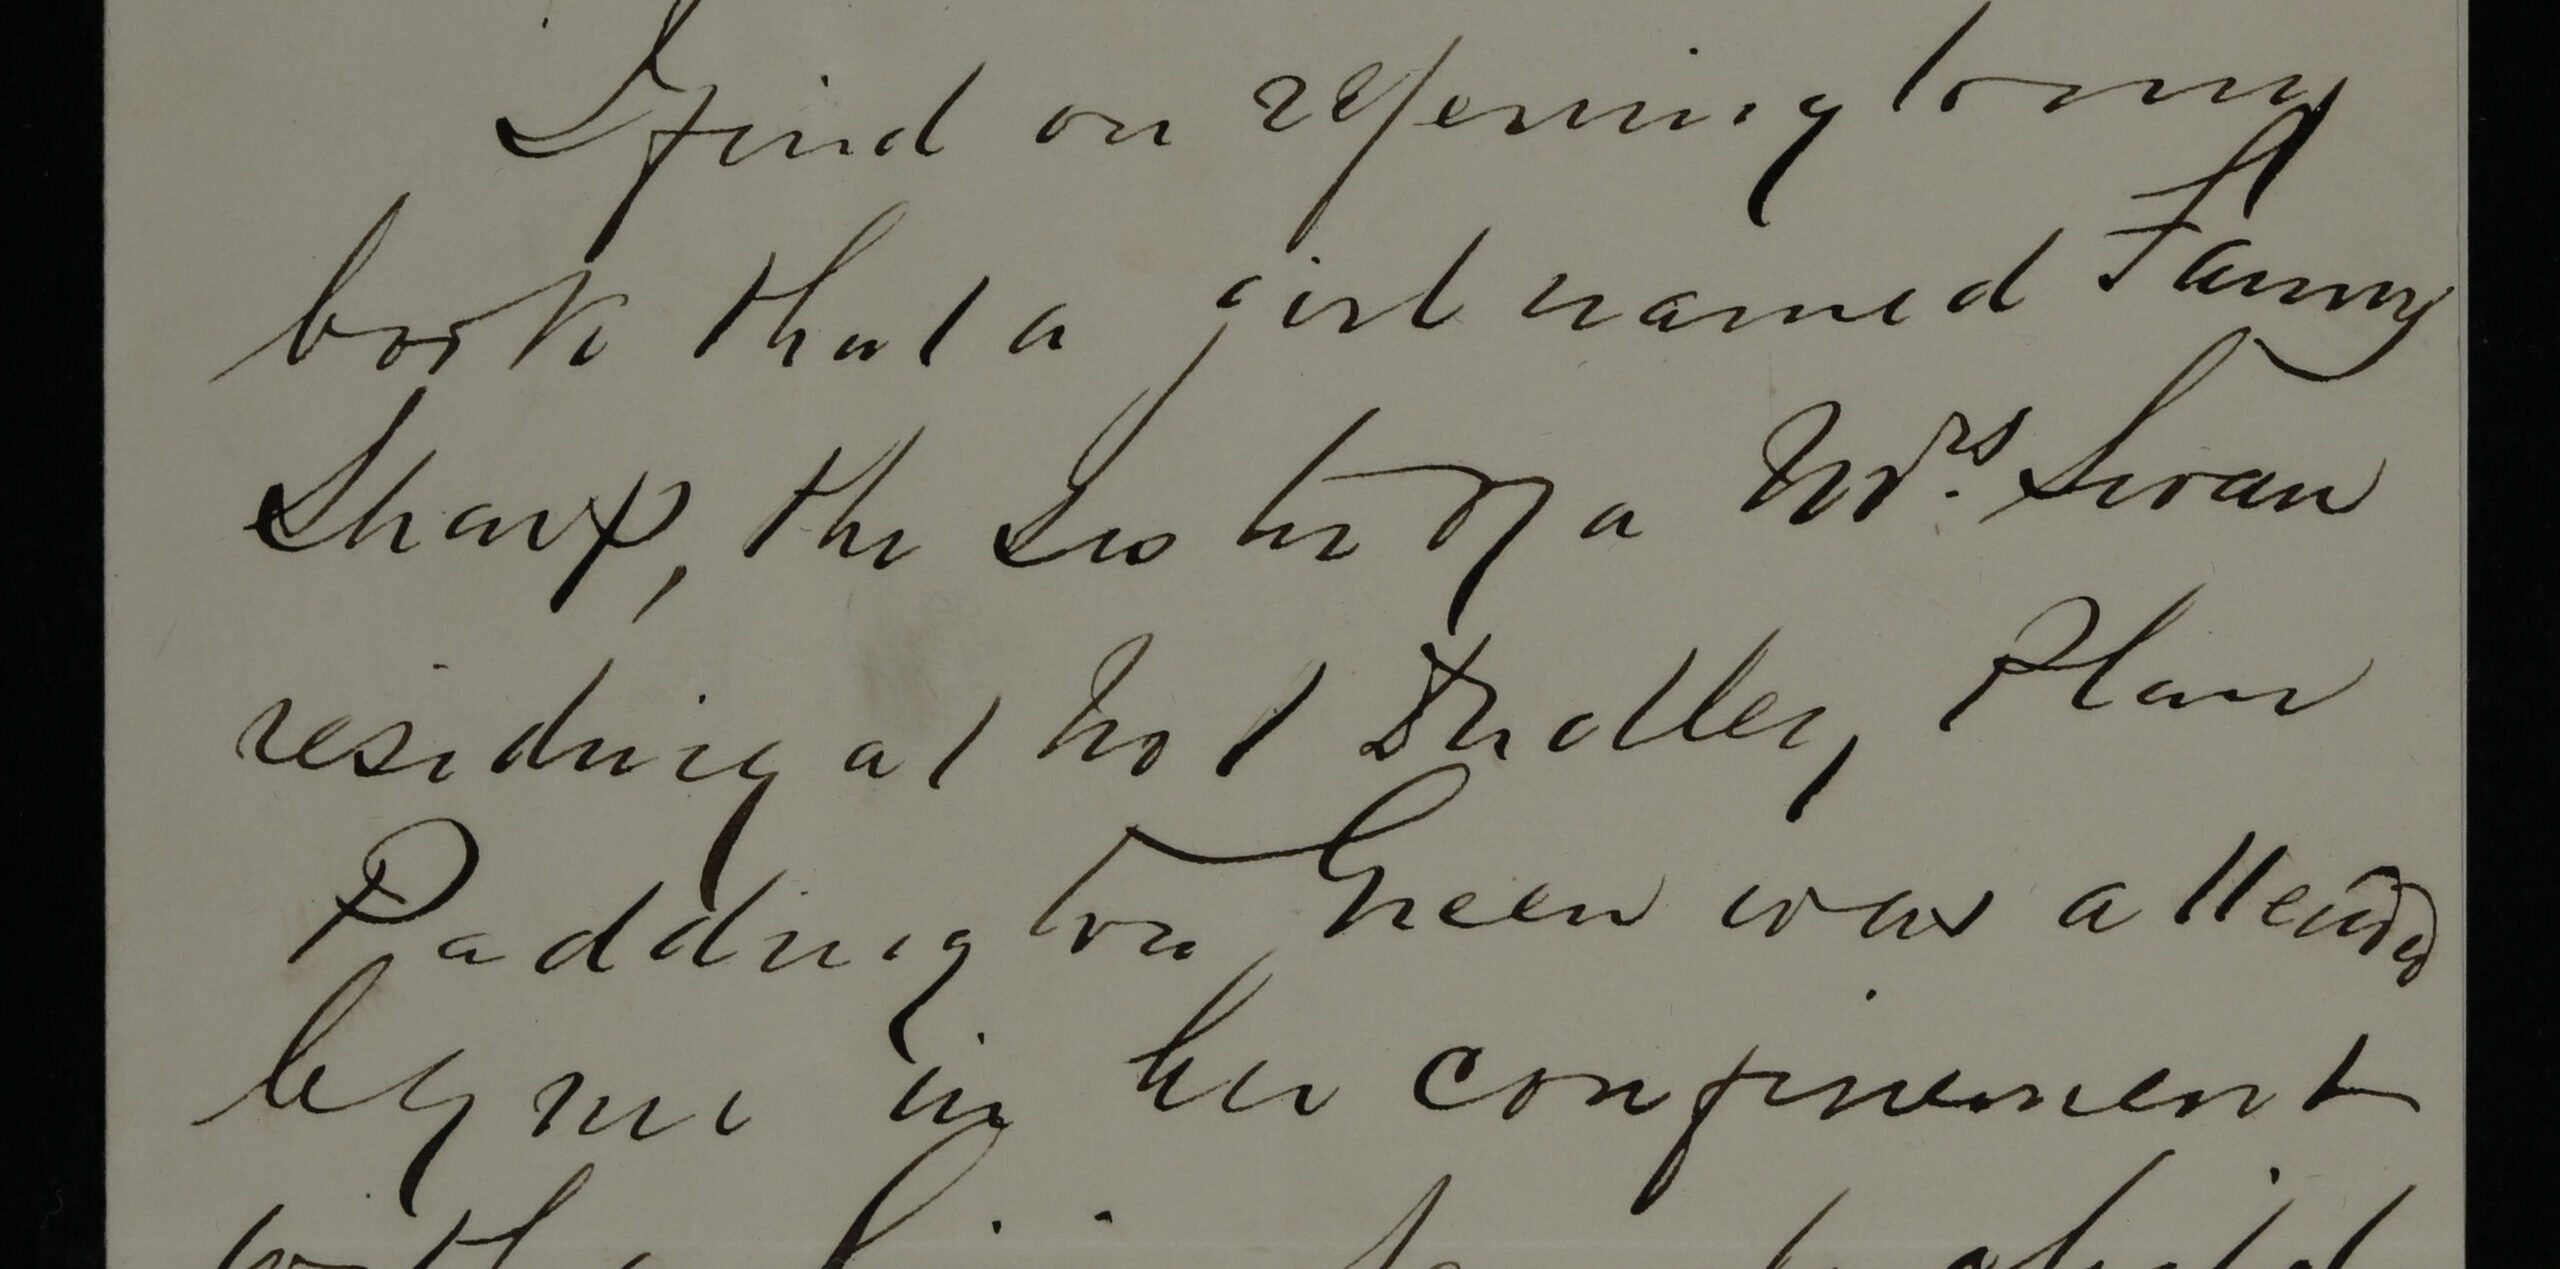 I find on referring to my
book that a girl named Fanny
Sharp, the Sister of a Mrs. Swan
residing at No 1 Dudley Place
Paddington Green was attended
by me in her confinement
with a living female child